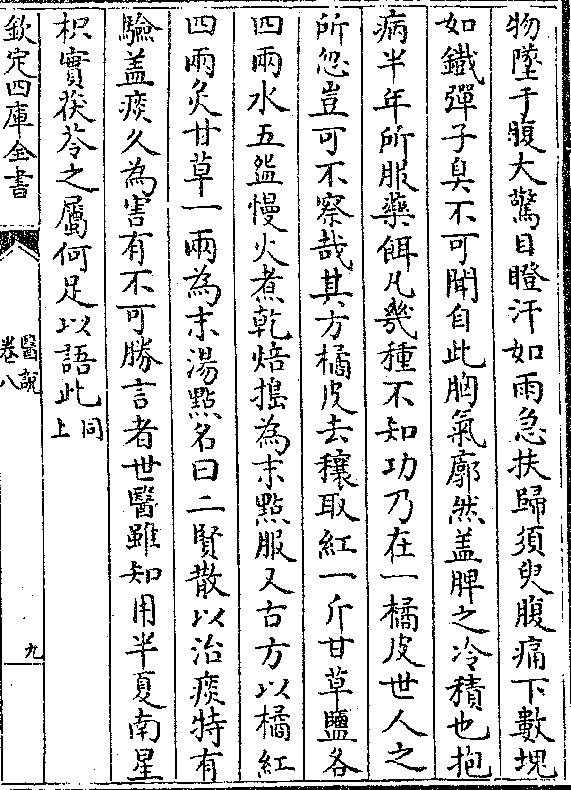 物墜于腹大驚目瞪汗如雨急扶歸須臾腹痛下數塊
如鐵彈子臭不可聞自此胸氣廓然盖脾之冷積也抱
病半年所服藥餌凡幾種不知功乃在一橘皮世人之
所忽豈可不察哉其方橘皮去穰取紅一斤甘草鹽各
四兩水五盌慢火煮乾焙搗為末點服又古方以橘紅
四兩炙甘草一兩為末湯點名曰二賢散以治痰特有
驗盖痰久為害有不可勝言者世醫雖知用半夏南星
枳實茯苓之屬何足以語此同上
欽定四庫全書
醫說
卷八
九